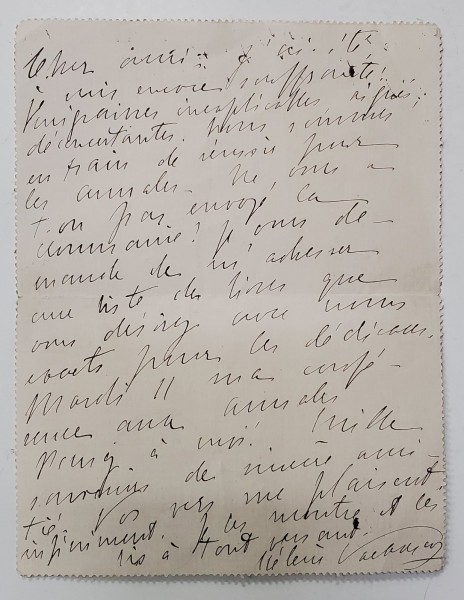 Cher ami. J'ai été
suis encore souffrante.
Migraines inexplicables,
déconcertantes. Nous sommes
en train de réussir pour
les annales. Ne vous a
t-on pas envoyé la
? Je vous de-
mande de m'adresser
une liste des livres que
vous désirez avec noms
exacts pour les dédicaces.
Mardi 11 ma confé-
rence aux annales
Pensez à moi! Mille
souvenirs de sincère ami-
tié. Vos vers me plaisent
infiniment. Je les montre et les
lis à tout venant.
Hélène Vacaresco